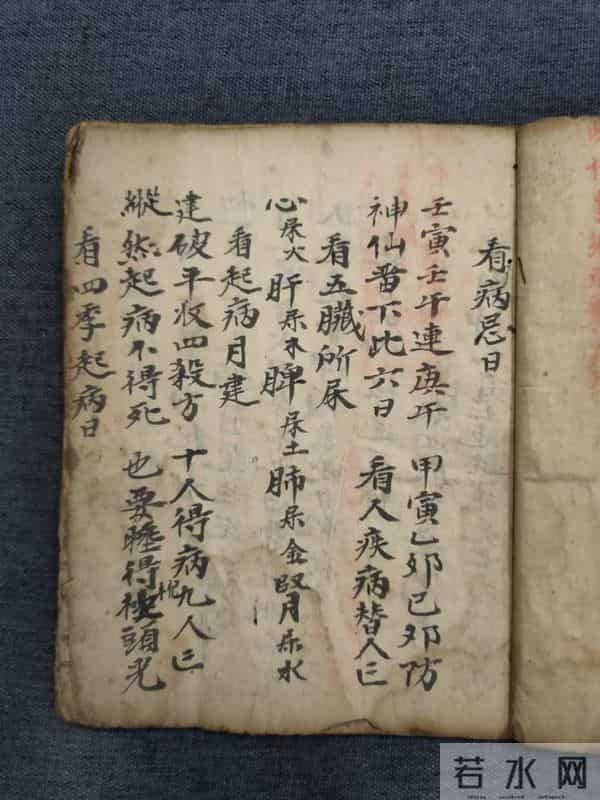 看病忌日
壬寅壬午連庚午 甲寅乙卯己卯防
神仙畱下此六日 看人疾病替人亡
看五臟所屎
心屎火 肝屎木 脾屎土 肺屎金 腎屎水
看起病月建
建破平收四殺方 十人得病九人亡
縱然起病不得死 也要睡得枕頭光
看四季起病日
若水网